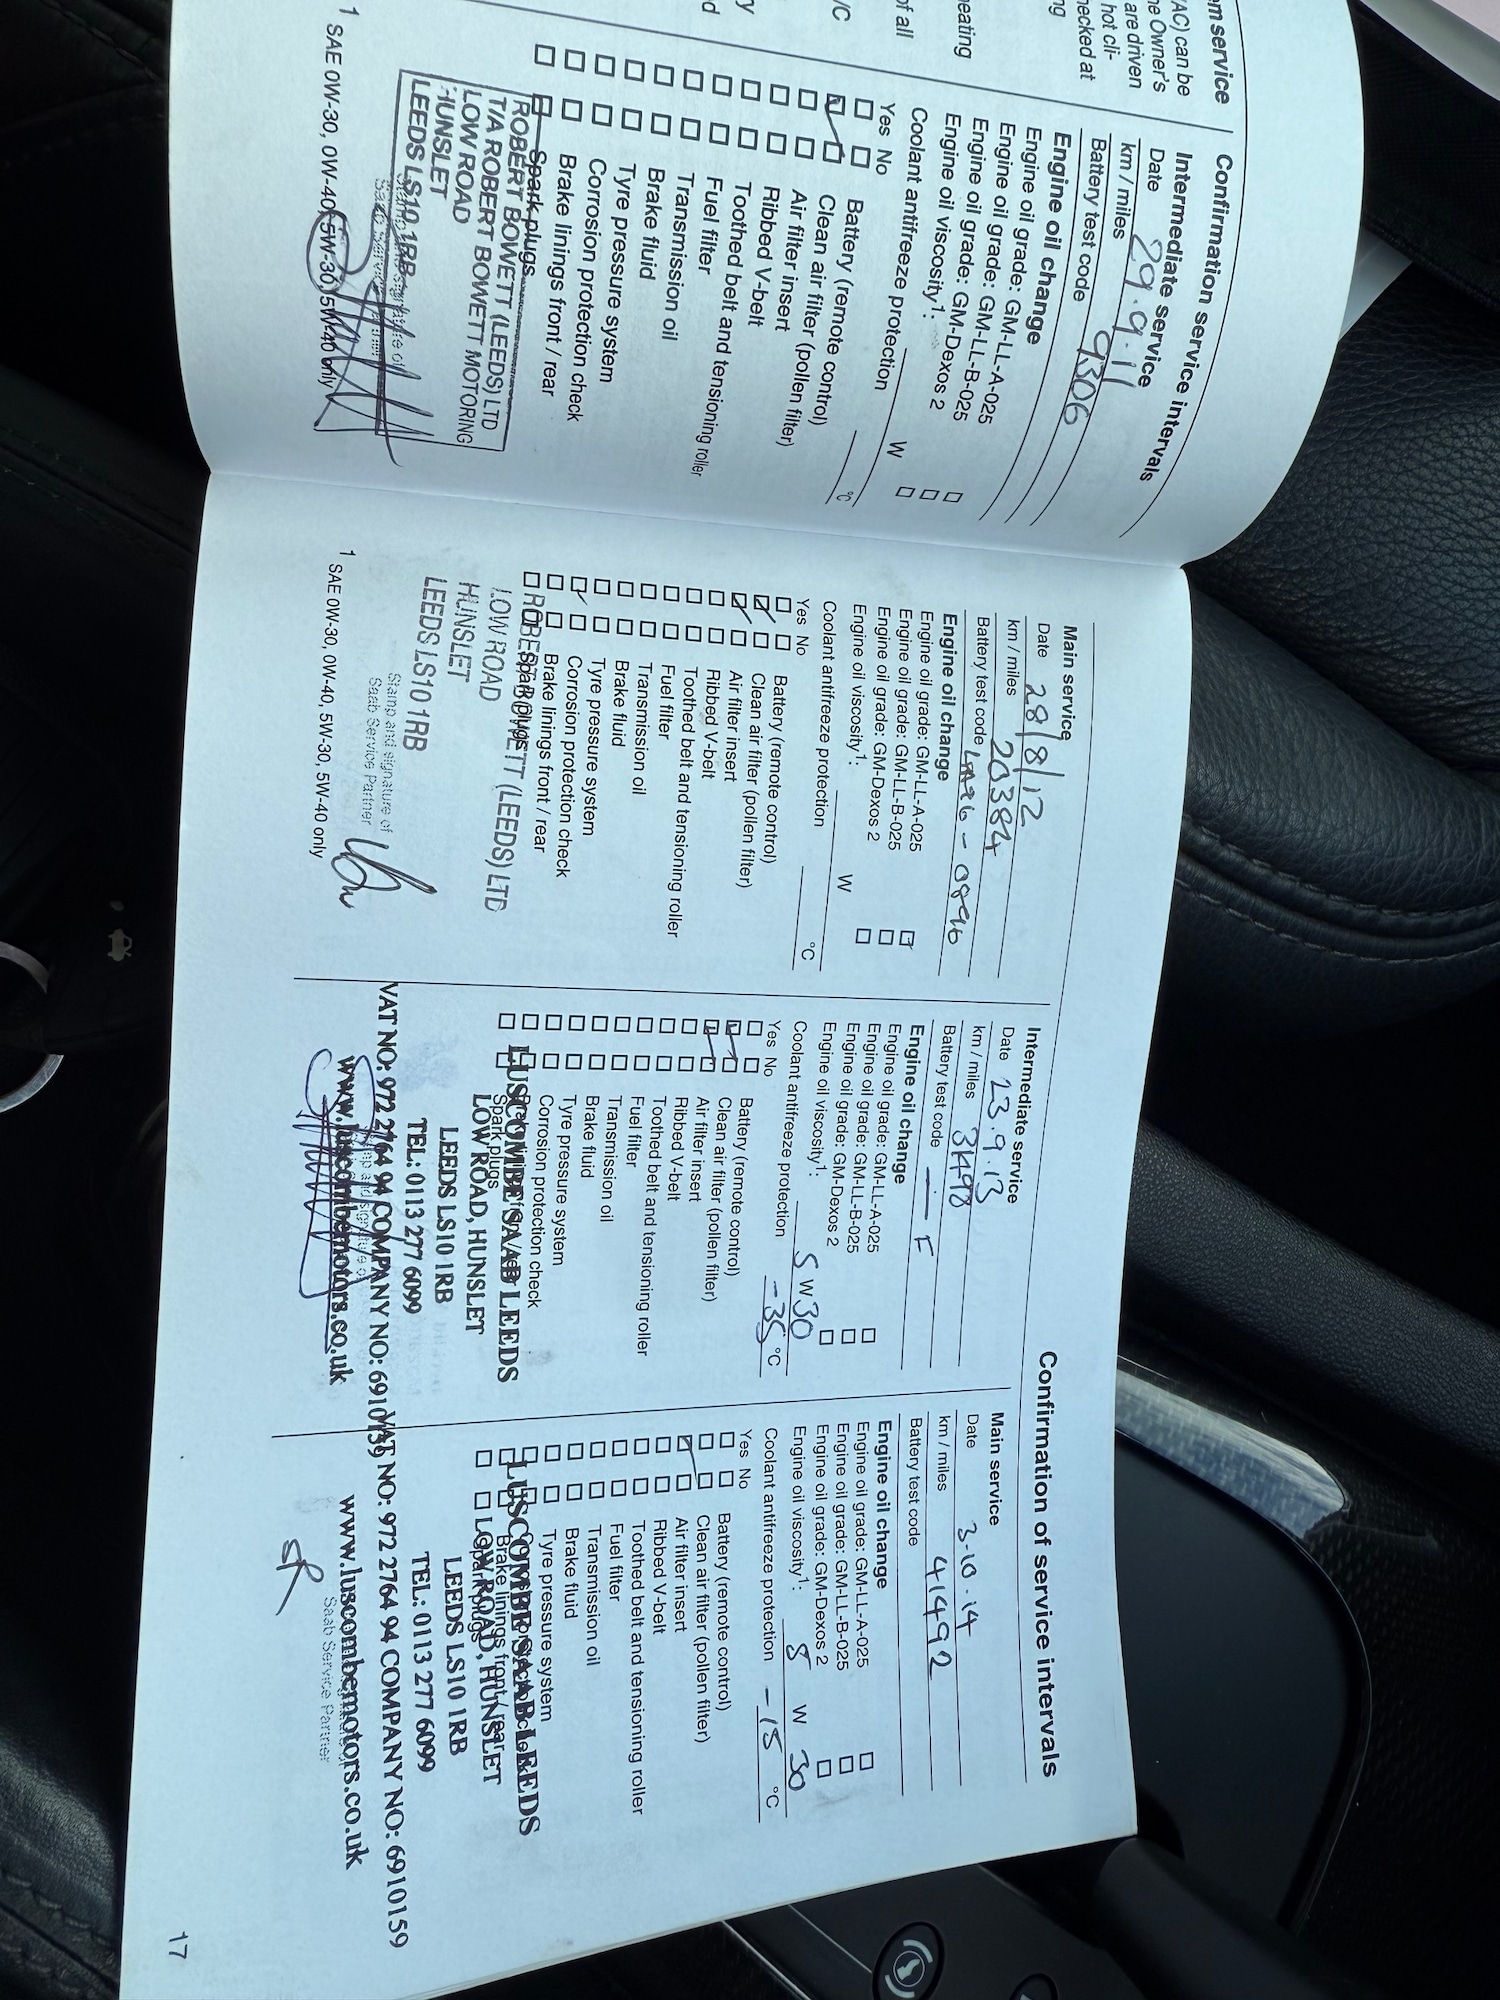 m service
AC) can be
ne Owner's
are driven
hot cli-
hecked at
ng
eating
of all
/C
y
d
Confirmation service intervals
Intermediate service
Date 29.9.11
km / miles 9306
Battery test code
Engine oil change
Engine oil grade: GM-LL-A-025
Engine oil grade: GM-LL-B-025
Engine oil grade: GM-Dexos 2
Engine oil viscosity1: W
Coolant antifreeze protection °C
Yes No
Battery (remote control)
Clean air filter (pollen filter)
Air filter insert
Ribbed V-belt
Toothed belt and tensioning roller
Fuel filter
Transmission oil
Brake fluid
Tyre pressure system
Corrosion protection check
Brake linings front / rear
Spark plugs
ROBERT BOWETT (LEEDS) LTD
T/A ROBERT BOWETT MOTORING
LOW ROAD
HUNSLET
LEEDS LS10 1RB
1 SAE 0W-30, 0W-40, 5W-30, 5W-40 only
Main service
Date 28/8/12
km / miles 20384
Battery test code
Engine oil change
Engine oil grade: GM-LL-A-025
Engine oil grade: GM-LL-B-025
Engine oil grade: GM-Dexos 2
Engine oil viscosity1: W
Coolant antifreeze protection °C
Yes No
Battery (remote control)
Clean air filter (pollen filter)
Air filter insert
Ribbed V-belt
Toothed belt and tensioning roller
Fuel filter
Transmission oil
Brake fluid
Tyre pressure system
Corrosion protection check
Brake linings front / rear
Spark plugs
ROBERT BOWETT (LEEDS) LTD
LOW ROAD
HUNSLET
LEEDS LS10 1RB
Stamp and signature of
Saab Service Partner
1 SAE 0W-30, 0W-40, 5W-30, 5W-40 only
Confirmation of service intervals
Intermediate service
Date 23.9.13
km / miles
Battery test code — F
Engine oil change
Engine oil grade: GM-LL-A-025
Engine oil grade: GM-LL-B-025
Engine oil grade: GM-Dexos 2
Engine oil viscosity1: 5 W 30
Coolant antifreeze protection -35 °C
Yes No
Battery (remote control)
Clean air filter (pollen filter)
Air filter insert
Ribbed V-belt
Toothed belt and tensioning roller
Fuel filter
Transmission oil
Brake fluid
Tyre pressure system
Corrosion protection check
Spark plugs
LUSCOMBE SAAB LEEDS
LOW ROAD, HUNSLET
LEEDS LS10 1RB
TEL: 0113 277 6099
VAT NO: 972 2764 94 COMPANY NO: 6910159
www.luscombemotors.co.uk
Main service
Date 3.10.14
km / miles 41492
Battery test code
Engine oil change
Engine oil grade: GM-LL-A-025
Engine oil grade: GM-LL-B-025
Engine oil grade: GM-Dexos 2
Engine oil viscosity1: W 30
Coolant antifreeze protection -15 °C
Yes No
Battery (remote control)
Clean air filter (pollen filter)
Air filter insert
Ribbed V-belt
Toothed belt and tensioning roller
Fuel filter
Transmission oil
Brake fluid
Tyre pressure system
Brake linings front / rear
LUSCOMBE SAAB LEEDS
LOW ROAD, HUNSLET
LEEDS LS10 1RB
TEL: 0113 277 6099
VAT NO: 972 2764 94 COMPANY NO: 6910159
www.luscombemotors.co.uk
Saab Service Partner
17